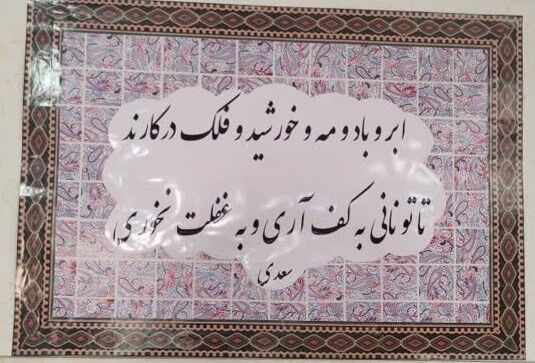 ابر و باد و مه و خورشید و فلک در کارند
تا تو نانی به کف آری و به غفلت نخوری
سعدی